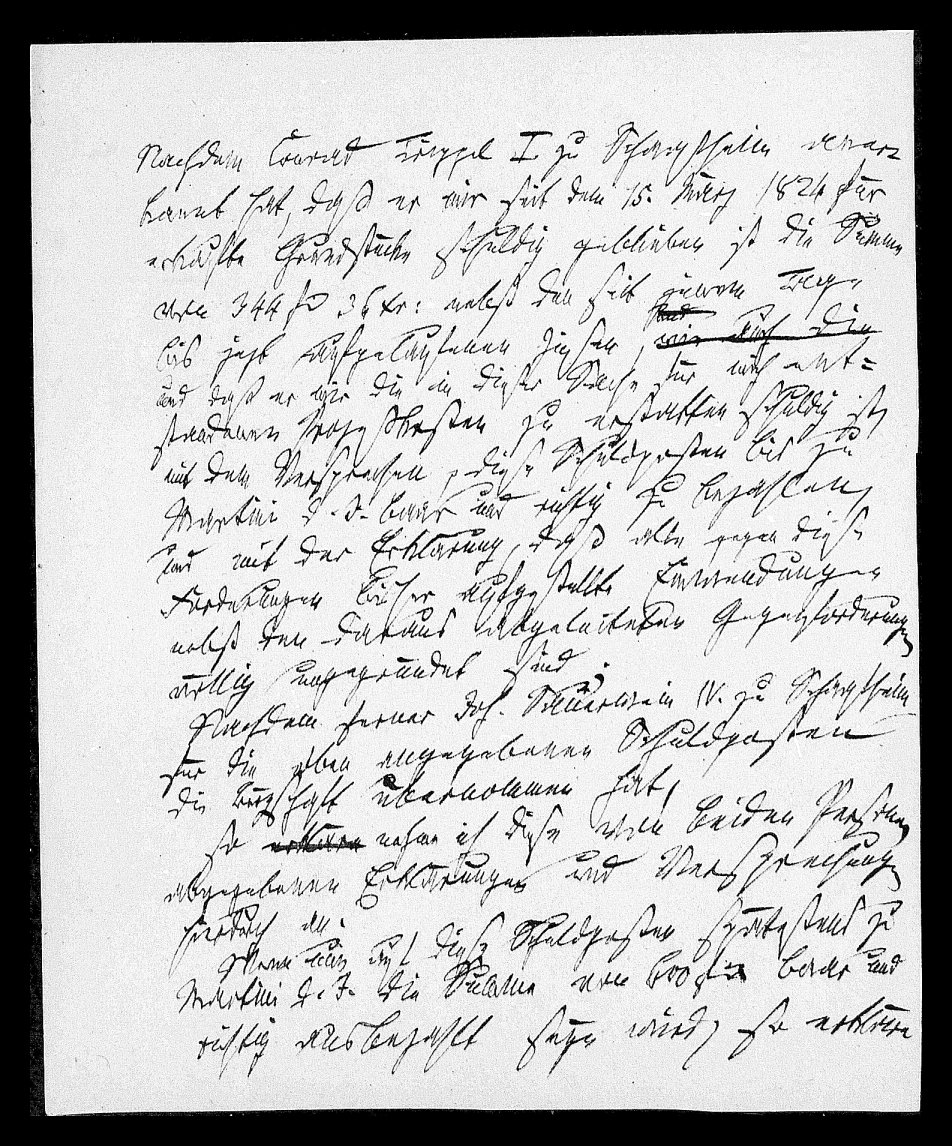 Nachdem Conrad Treppel I. zu Schafheim aner-
kannt hat, daß er mir seit dem 15. März 1824 für
erkaufte Grundstücke schuldig geblieben ist die Summe
von 344 fl 36 kr: nebst den seit jenem Tage
bis jetzt aufgelaufenen Zinsen, wie auch die
und daß er mir die in dieser Sache für mich ent=
standenen Prozeßkosten zu erstatten schuldig ist,
mit dem Versprechen, diese Schuldposten bis zu
Martini d. J. baar und richtig zu bezahlen,
und mit der Erklärung, daß alle gegen diese
Forderungen bisher aufgestellte Einwendungen
nebst den daraus abgeleiteten Gegenforderungen
völlig ungegründet sind;
Nachdem ferner Joh. Sauerwein IV. zu Schafheim
für die oben angegebenen Schuldposten
die Bürgschaft übernommen hat,
so nehme ich diese von beiden Personen
abgegebenen Erklärungen und Versprechungen
hierdurch an.
Wenn nun auf diese Schuldposten spätestens zu
Martini d. J. die Summe von 600 fl baar und
richtig ausbezahlt seyn wird, so erkläre